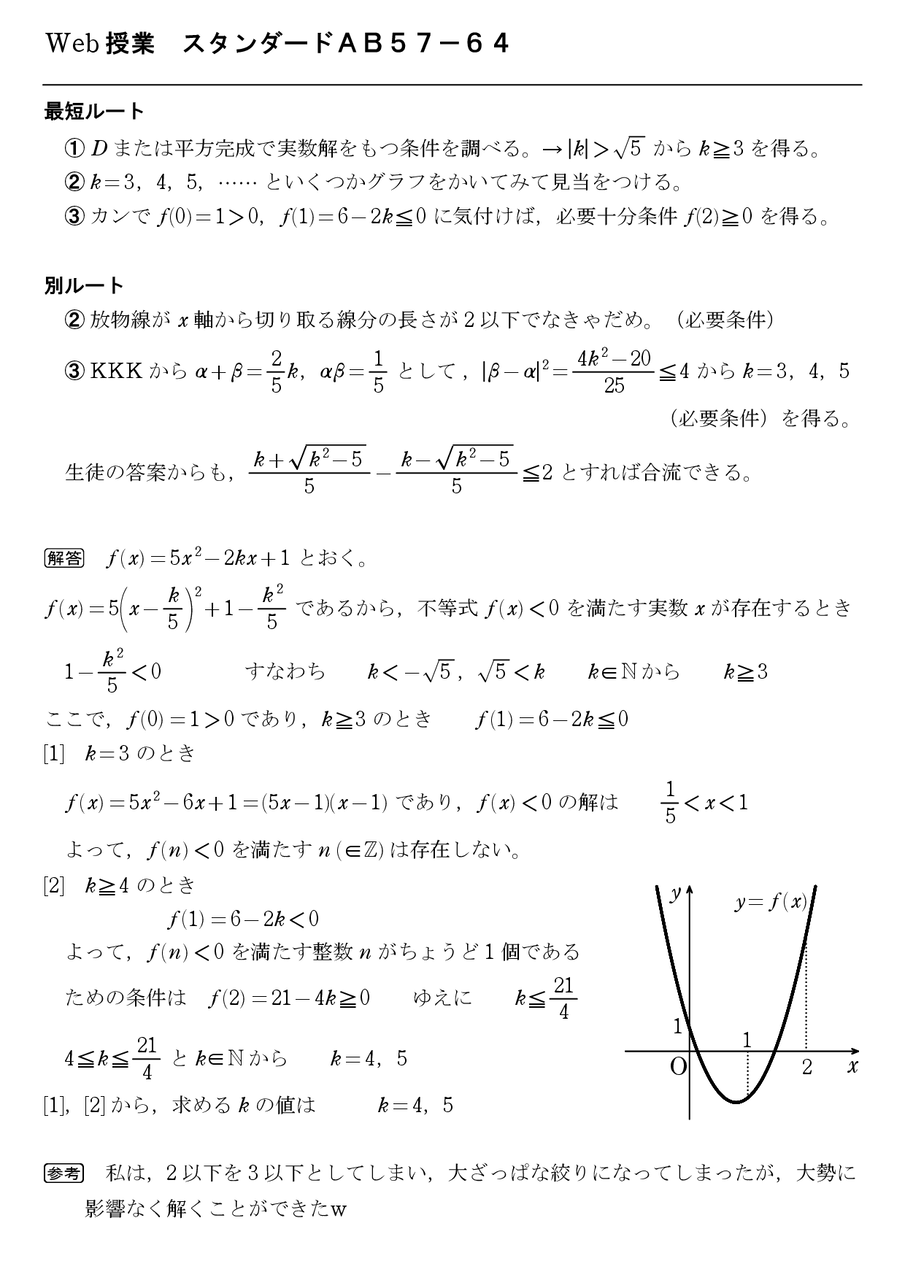 Web 授業　スタンダードＡＢ５７－６４
最短ルート
① D または平方完成で実数解をもつ条件を調べる。→ |k|＞√5 から k≧3 を得る。
② k＝3，4，5，…… といくつかグラフをかいてみて見当をつける。
③ カンで f(0)＝1＞0，f(1)＝6－2k≦0 に気付けば，必要十分条件 f(2)≧0 を得る。
別ルート
② 放物線が x 軸から切り取る線分の長さが 2 以下でなきゃだめ。（必要条件）
③ KKK から α＋β＝2/5 k，αβ＝1/5 として，|β－α|²＝(4k²－20)/25≦4 から k＝3，4，5
（必要条件）を得る。
生徒の答案からも，(k＋√(k²－5))/5－(k－√(k²－5))/5≦2 とすれば合流できる。
解答　f(x)＝5x²－2kx＋1 とおく。
f(x)＝5(x－k/5)²＋1－k²/5 であるから，不等式 f(x)＜0 を満たす実数 x が存在するとき
1－k²/5＜0　すなわち　k＜－√5，√5＜k　k∈ℕ から　k≧3
ここで，f(0)＝1＞0 であり，k≧3 のとき　f(1)＝6－2k≦0
[1]　k＝3 のとき
f(x)＝5x²－6x＋1＝(5x－1)(x－1) であり，f(x)＜0 の解は　1/5＜x＜1
よって，f(n)＜0 を満たす n (∈ℤ) は存在しない。
[2]　k≧4 のとき
f(1)＝6－2k＜0
よって，f(n)＜0 を満たす整数 n がちょうど 1 個である
ための条件は　f(2)＝21－4k≧0　ゆえに　k≦21/4
4≦k≦21/4 と k∈ℕ から　k＝4，5
[1]，[2] から，求める k の値は　k＝4，5
y
y＝f(x)
1
1
O
2
x
参考　私は，2 以下を 3 以下としてしまい，大ざっぱな絞りになってしまったが，大勢に
影響なく解くことができたｗ